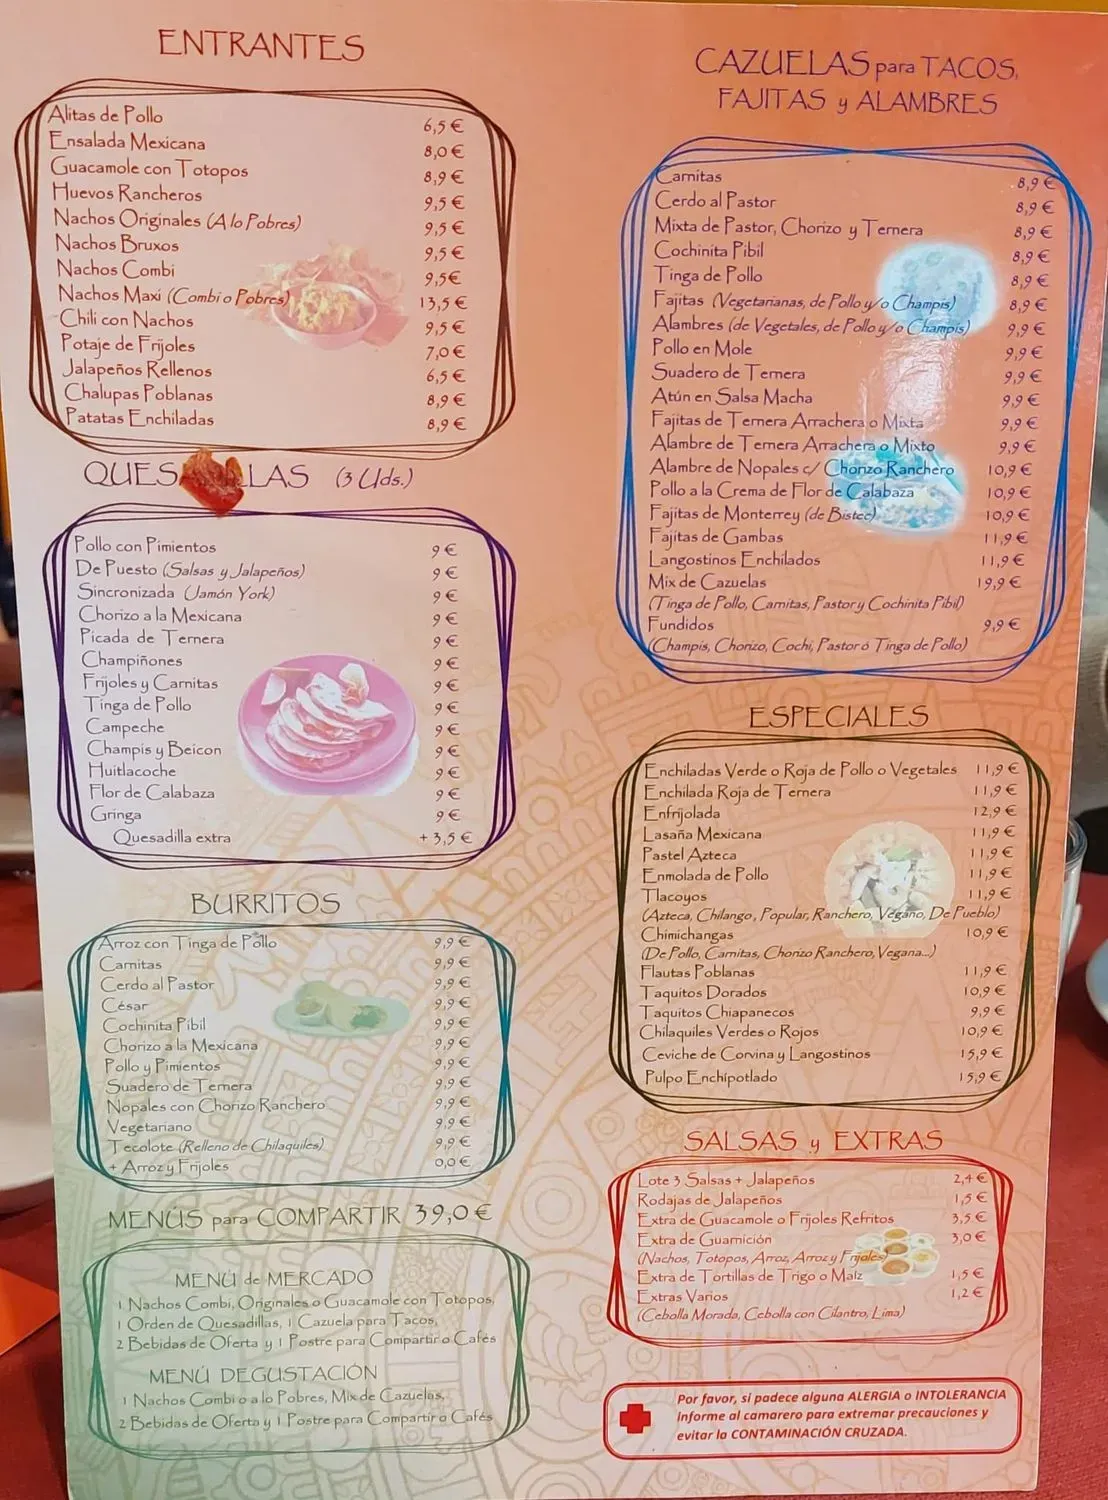 ENTRANTES
Alitas de Pollo 6,5 €
Ensalada Mexicana 8,0 €
Guacamole con Totopos 8,9 €
Huevos Rancheros 9,5 €
Nachos Originales (A lo Pobres) 9,5 €
Nachos Bruxos 9,5 €
Nachos Combi 9,5€
Nachos Maxi (Combi o Pobres) 13,5 €
Chili con Nachos 9,5 €
Potaje de Frijoles 7,0 €
Jalapeños Rellenos 6,5 €
Chalupas Poblanas 8,9 €
Patatas Enchiladas 8,9 €
QUES LLAS (3 Uds.)
Pollo con Pimientos 9 €
De Puesto (Salsas y Jalapeños) 9 €
Sincronizada (Jamón York) 9 €
Chorizo a la Mexicana 9 €
Picada de Ternera 9 €
Champiñones 9 €
Frijoles y Carnitas 9 €
Tinga de Pollo 9 €
Campeche 9 €
Champis y Beicon 9 €
Huitlacoche 9 €
Flor de Calabaza 9 €
Gringa 9 €
Quesadilla extra + 3,5 €
BURRITOS
Arroz con Tinga de Pollo 9,9 €
Carnitas 9,9 €
Cerdo al Pastor 9,9 €
César 9,9 €
Cochinita Pibil 9,9 €
Chorizo a la Mexicana 9,9 €
Pollo y Pimientos 9,9 €
Suadero de Ternera 9,9 €
Nopales con Chorizo Ranchero 9,9 €
Vegetariano 9,9 €
Tecolote (Relleno de Chilaquiles) 9,9 €
+ Arroz y Frijoles 0,0 €
MENÚS para COMPARTIR 39,0 €
MENÚ de MERCADO
1 Nachos Combi, Originales o Guacamole con Totopos,
1 Orden de Quesadillas, 1 Cazuela para Tacos,
2 Bebidas de Oferta y 1 Postre para Compartir o Cafés
MENÚ DEGUSTACIÓN
1 Nachos Combi o a lo Pobres, Mix de Cazuelas,
2 Bebidas de Oferta y 1 Postre para Compartir o Cafés
CAZUELAS para TACOS,
FAJITAS y ALAMBRES
Carnitas 8,9 €
Cerdo al Pastor 8,9 €
Mixta de Pastor, Chorizo y Ternera 8,9 €
Cochinita Pibil 8,9 €
Tinga de Pollo 8,9 €
Fajitas (Vegetarianas, de Pollo y/o Champis) 8,9 €
Alambres (de Vegetales, de Pollo y/o Champis) 9,9 €
Pollo en Mole 9,9 €
Suadero de Ternera 9,9 €
Atún en Salsa Macha 9,9 €
Fajitas de Ternera Arrachera o Mixta 9,9 €
Alambre de Ternera Arrachera o Mixto 9,9 €
Alambre de Nopales c/ Chorizo Ranchero 10,9 €
Pollo a la Crema de Flor de Calabaza 10,9 €
Fajitas de Monterrey (de Bistec) 10,9 €
Fajitas de Gambas 11,9 €
Langostinos Enchilados 11,9 €
Mix de Cazuelas 19,9 €
(Tinga de Pollo, Carnitas, Pastor y Cochinita Pibil)
Fundidos 9,9 €
(Champis, Chorizo, Cochi, Pastor ó Tinga de Pollo)
ESPECIALES
Enchiladas Verde o Roja de Pollo o Vegetales 11,9 €
Enchilada Roja de Ternera 11,9 €
Enfrijolada 12,9 €
Lasaña Mexicana 11,9 €
Pastel Azteca 11,9 €
Enmolada de Pollo 11,9 €
Tlacoyos 11,9 €
(Azteca, Chilango, Popular, Ranchero, Vegano, De Pueblo)
Chimichangas 10,9 €
(De Pollo, Carnitas, Chorizo Ranchero, Vegana...)
Flautas Poblanas 11,9 €
Taquitos Dorados 10,9 €
Taquitos Chiapanecos 9,9 €
Chilaquiles Verdes o Rojos 10,9 €
Ceviche de Corvina y Langostinos 15,9 €
Pulpo Enchipotlado 15,9 €
SALSAS y EXTRAS
Lote 3 Salsas + Jalapeños 2,4 €
Rodajas de Jalapeños 1,5 €
Extra de Guacamole o Frijoles Refritos 3,5 €
Extra de Guarnición 3,0 €
(Nachos, Totopos, Arroz, Arroz y Frijoles)
Extra de Tortillas de Trigo o Maíz 1,5 €
Extras Varios 1,2 €
(Cebolla Morada, Cebolla con Cilantro, Lima)
Por favor, si padece alguna ALERGIA o INTOLERANCIA
informe al camarero para extremar precauciones y
evitar la CONTAMINACIÓN CRUZADA.